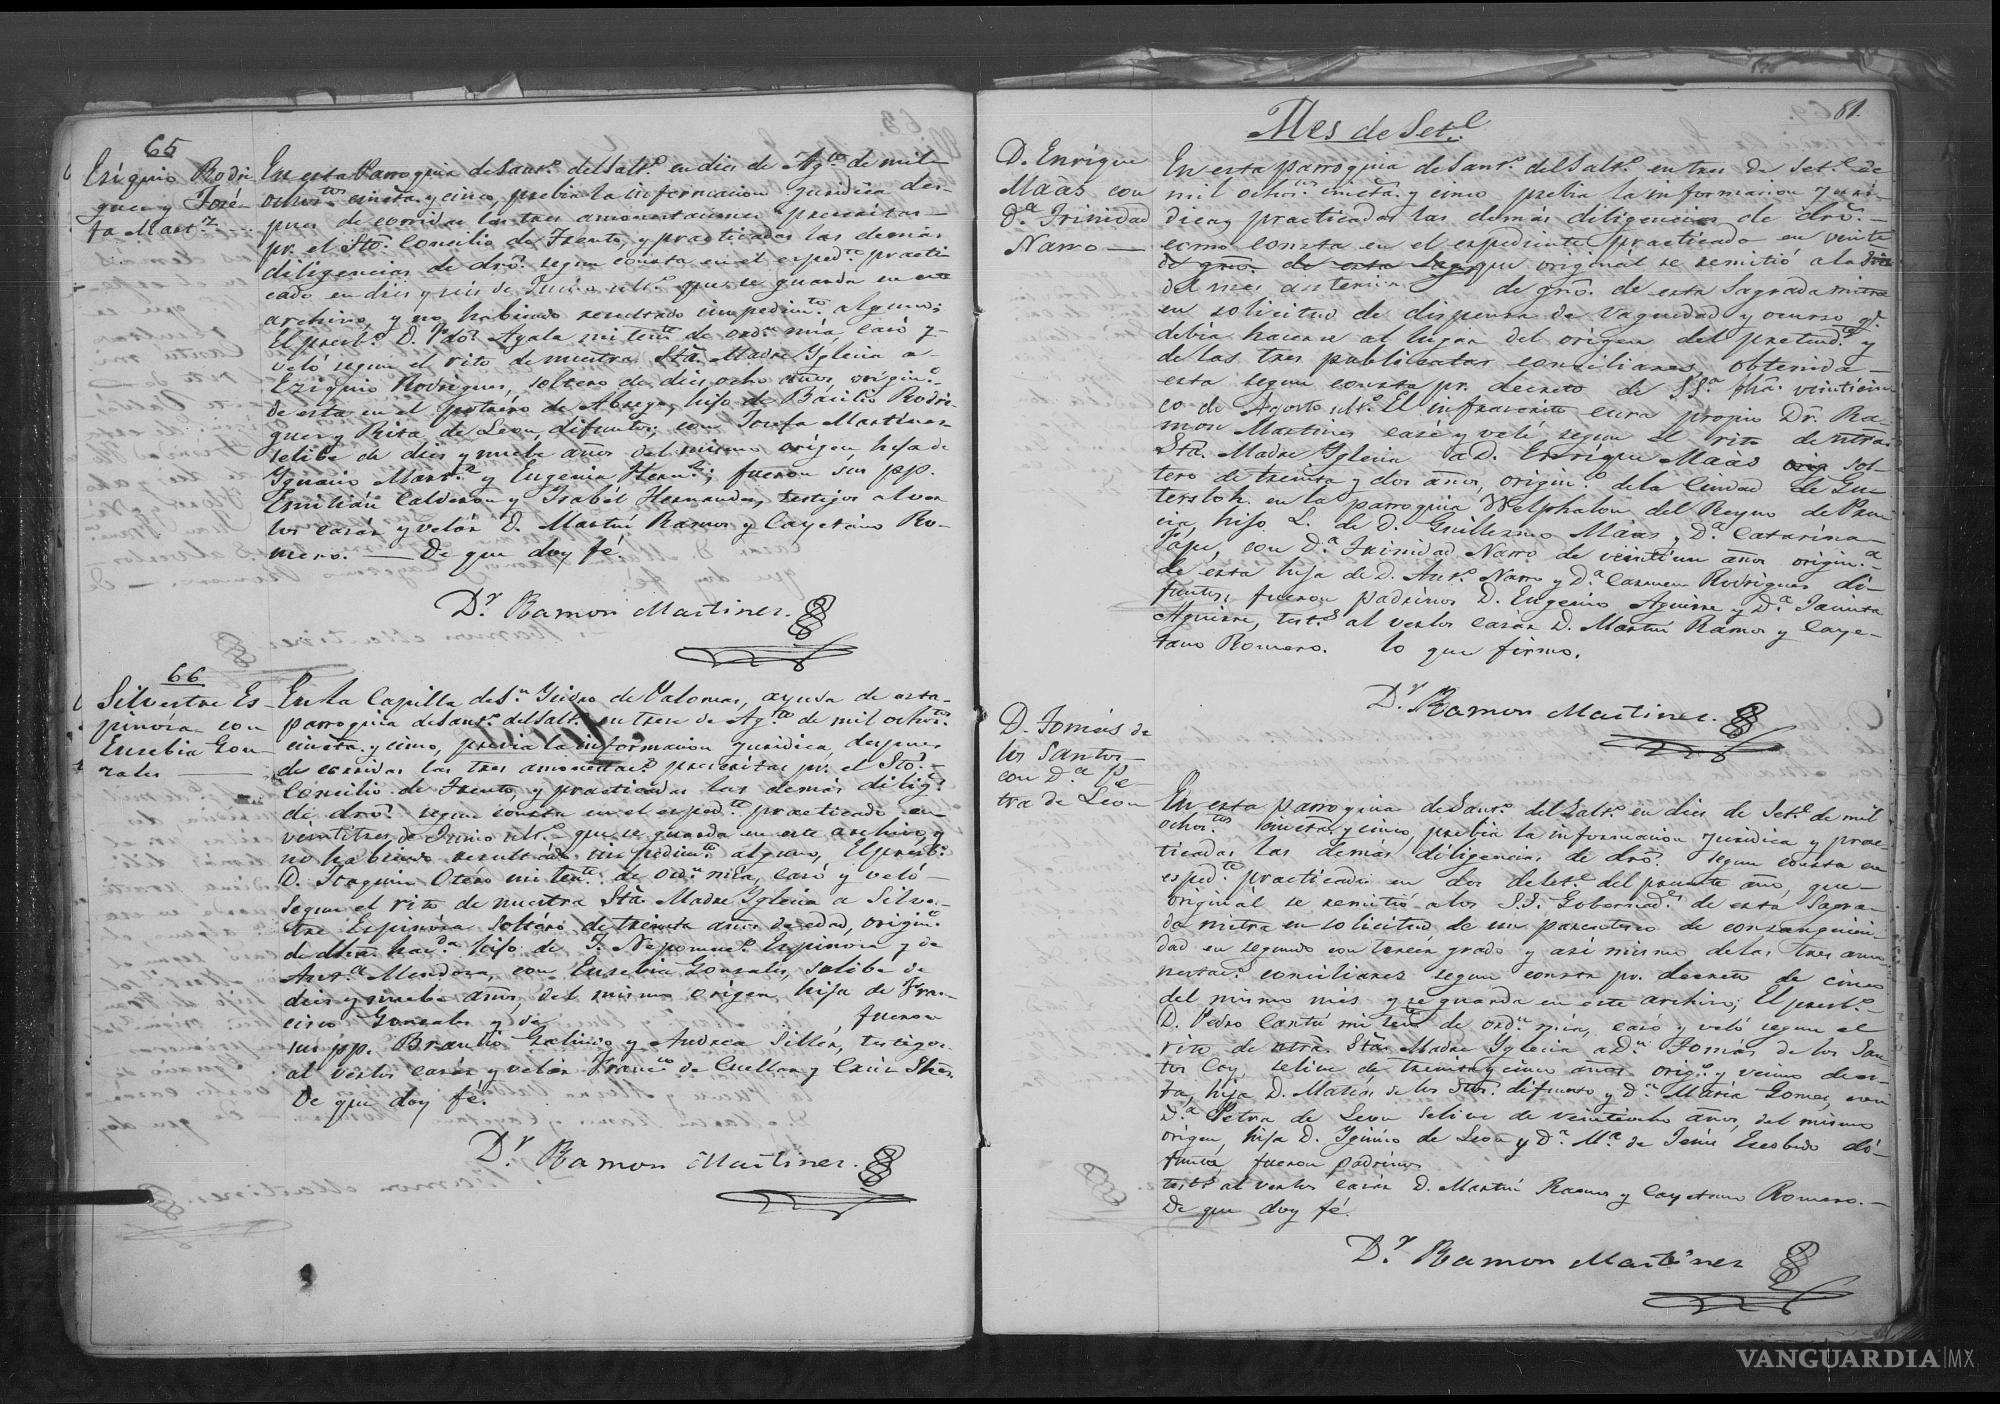 65
Esiquio Rodri
gues y José-
fa Mart.z
En esta Parroquia de Sant.o del Salt.o en dies de Ag.to de mil
ochos.tos cincta. y cinco, prebia la informacion juridica des-
pues de corridas las tres amonestaciones prescritas
pr. el Sto. Concilio de Trento, y practicadas las demás
diligencias de dro. segun consta en el exped.te practi
cado en dies y seis de Junio ult.o que se guarda en este
archivo, y no habiendo resultado impedim.to alguno;
El presb.o D. Ayala mi ten.te de ord.n mia, casó y
veló segun el rito de nuestra Sta. Madre Yglecia a
Eziquio Rodrigues, soltero de dies ocho años, origin.o
de esta en el potrero de Abrego, hijo de Basilio Rodri-
gues y Rita de Leon, difuntos; con Josefa Martines
selibe de dies y nuebe años del mismo origen hija de
Ygnacio Mart.z y Eugenia Hern.z; fueron sus pp.
Emilián Calderon y Ysabél Hernandes, testigos al ver
los casár y velár D. Martin Ramos y Cayetáno Ro-
mero. — De que doy fé.
D.r Ramon Martines.
66
Silvestre Es
pinósa con
Eusebia Gon
zales
En la Capilla de S.n Ysidro de Palomas, ayuda de esta
parroquia de Sant.o del Salt.o en trese de Ag.to de mil ochos.tos
cincta. y cinco, previa la informacion juridica, despues
de corridas las tres amonestac.s prescritas pr. el Sto.
Concilio de Trento, y practicadas las demás dilig.s
de dro. segun consta en el exped.te practicado en
veintitres de Junio ult.o que se guarda en este archivo, y
no habiendo resultado impedim.to alguno, El presb.o
D. Joaquin Otéro mi ten.te de ord.n mia, casó y veló
segun el rito de nuestra Sta. Madre Yglecia a Silves-
tre Espinósa soltéro de treinta años de edad, origin.o
de dicha hac.da hijo de J. Nepomuc.o Espinosa y de
Ant.a Mendosa, con Eusebia Gonzales, selibe de
dies y nuebe años, del mismo origen hija de Fran-
cisco Gonzales y de fueron
sus pp. Braulio Galindo y Andrea Sillér, testigos
al verlos casár y velár Franc.co de Cuellar y Cruz
De que doy fé.
D.r Ramon Martines.
81.
Mes de Set.e
D. Enrique
Maas con
D.a Trinidad
Narro
En esta parroquia de Sant.o del Salt.o en tres de Set.e de
mil ochos.tos cincta. y cinco prebia la informacion juri-
dica, y practicadas las demás diligencias de dro.
como consta en el expediente practicado en veinte
de gno. de esta que originál se remitió a la
del mes anterior de gno. de esta Sagrada mitra
en solicitud de dispensa de vaguedad y ocurso q.e
debia hacerse al lugar del origen del pretend.te y
de las tres publicatas conciliares, obtenida
esta segun consta pr. decreto de SS.a fha. veinticin
co de Agosto ult.o El infraescrito cura propio Dr. Ra-
mon Martines casé y velé segun el rito de ntra.
Sta. Madre Yglecia a D. Enrique Maas orig sol-
tero de treinta y dos años, origin.o de la Ciudad de Gu
tersloh en la parroquia Welphalon del Reyno de Pru
cia, hijo L. de D. Guillermo Máas y D.a Catarina
Pápe, con D.a Trinidad Narro de veintiun años origin.a
de esta hija de D. Ant.o Narro y D.a Carmen Rodrigues di-
funtos, fueron padrinos D. Eugenio Aguirre y D.a Jacinta
Aguirre, test.s al verlos casár D. Martin Ramos y Caye-
tano Romero. lo que firmo.
D.r Ramon Martines.
D. Tomás de
los Santos
con D.a Pe
tra de León
En esta parroquia de Sant.o del Salt.o en dies de Set.e de mil
ochos.tos cincta. y cinco, prebia la informacion juridica y prac
ticadas las demás diligencias de dro. segun consta en
exped.te practicado en dos de Set.e del presente año, que
originál se remitió a los S.S. Gobernad.s de esta Sagra-
da mitra en solicitud de un parentesco de consanguini-
dad en segundo con tercer grado y así mismo de las tres amo
nestac.s conciliares segun consta pr. decreto de cinco
del mismo més y se guarda en este archivo; El presb.o
D. Pedro Cantú mi ten.te de ord.n mia, casó y veló segun el
rito de ntra. Sta. Madre Yglecia a D.n Tomás de los San
tos Coy, selibe de treinta y cinco años orig.o y vecino de es-
ta, hijo D. Matias de los Stos. difunto y D.a María Gomes, con
D.a Petra de Leon selibe de veintiocho años, del mismo
origen, hija D. Yginio de Leon y D.a M.a de Jesús Escobedo di-
funta, fueron padrinos
test.s al verlos casár D. Martin Ramos y Cayetano Romero.
De que doy fé.
D.r Ramon Martines
VANGUARDIA|MX